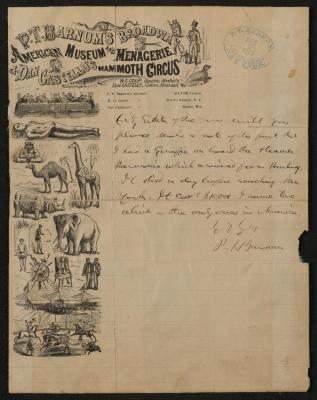 P.T. BARNUM'S BROADWAY
AMERICAN MUSEUM AND MENAGERIE,
& DAN CASTELLO'S MAMMOTH CIRCUS
W.C. COUP, GENERAL MANAGER.
DAN CASTELLO, CIRCUS MANAGER
P. T. BARNUM
City Editor of the will you
please make a note of the fact that
I had a Giraffe on board the Steamer
which arrived from Hamburg.
It died a day before reaching New
York. It cost $ I have two
alive — the only ones in America.
P. T. Barnum